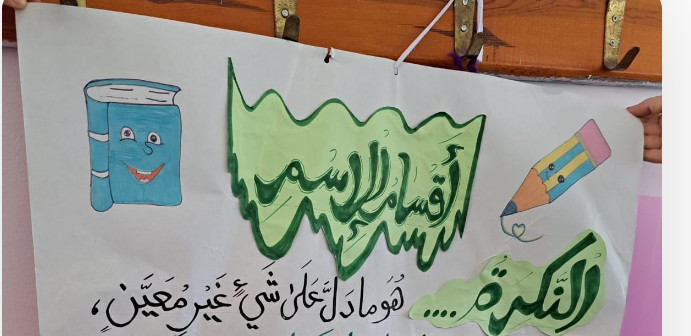 أَقْسَامُ الِاسْمِ
النَّكِرَةُ .... هُوَ مَا دَلَّ عَلَىٰ شَيْءٍ غَيْرِ مُعَيَّنٍ،